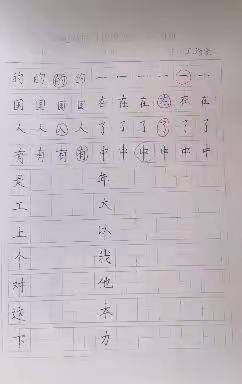 的 的 的 的 一 一 一 一 一 一
国 国 国 国 在 在 在 在 在 在
人 人 人 人 了 了 了 了 了 了
有 有 有 有 中 中 中 中 中 中
是 年
工 大
上 以
个 我
对 他
这 本
下 力